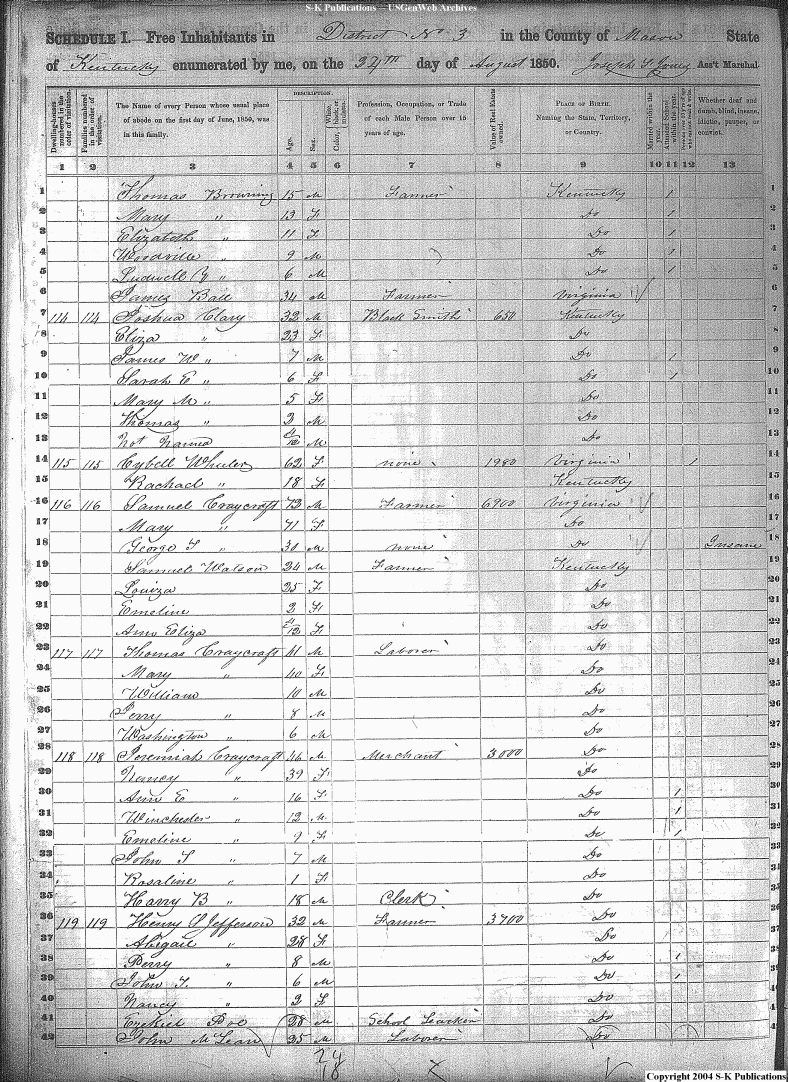 S-K Publications — USGenWeb Archives
SCHEDULE I. Free Inhabitants in District No. 3 in the County of Mason State
of Kentucky enumerated by me, on the day of August 1850. Ass't Marshal.
DESCRIPTION.
Dwelling-houses numbered in the order of visitation.
Families numbered in the order of visitation.
The Name of every Person whose usual place of abode on the first day of June, 1850, was in this family.
Age.
Sex.
Color, White, black, or mulatto.
Profession, Occupation, or Trade of each Male Person over 15 years of age.
Value of Real Estate owned.
PLACE OF BIRTH. Naming the State, Territory, or Country.
Married within the year.
Attended School within the year.
Whether deaf and dumb, blind, insane, idiotic, pauper, or convict.
1 2 3 4 5 6 7 8 9 10 11 12 13
1 Thomas Browning 15 M Farmer Kentucky 1 1
2 Mary " 13 F Do 1 2
3 Elizabeth " 11 F Do 1 3
4 Woodville " 9 M Do 1 4
5 Ludwell " 6 M Do 1 5
6 James Ball 34 M Farmer Virginia 6
7 114 114 Joshua Clary 32 M Black Smith 650 Kentucky 7
8 Eliza " 23 F Do 8
9 James W " 7 M Do 1 9
10 Sarah E " 6 F Do 1 10
11 Mary M " 5 F Do 11
12 Thomas " 3 M Do 12
13 Not Named 4/12 M Do 13
14 115 115 Cybell Wheeler 62 F none 1980 Virginia 1 14
15 Rachael " 18 F Kentucky 15
16 116 116 Samuel Craycraft 73 M Farmer 6900 Virginia 16
17 Mary " 71 F Do 17
18 George T " 30 M none Do Insane 18
19 Samuel Watson 24 M Farmer Kentucky 19
20 Louiza 25 F Do 20
21 Emeline 2 F Do 21
22 Ann Eliza 4/12 F Do 22
23 117 117 Thomas Craycraft 41 M Laborer Do 23
24 Mary " 40 F Do 24
25 William 10 M Do 25
26 Perry " 8 M Do 26
27 Washington " 6 M Do 27
28 118 118 Jeremiah Craycraft 46 M Merchant 3000 Do 28
29 Nancy " 39 F Do 29
30 Ann E " 16 F Do 1 30
31 Winchester " 12 M Do 1 31
32 Emeline " 9 F Do 1 32
33 John T " 7 M Do 33
34 Rosaline " 1 F Do 34
35 Harry B " 18 M Clerk Do 35
36 119 119 Henry Jefferson 32 M Farmer 3700 Do 36
37 Abigail " 28 F Do 37
38 Perry " 8 M Do 1 38
39 John T. " 6 M Do 1 39
40 Nancy " 2 F Do 40
41 Ezekiel Poe 28 M School Teacher Do 41
42 John McLean 25 M Laborer Do 42
24
18
Copyright 2004 S-K Publications